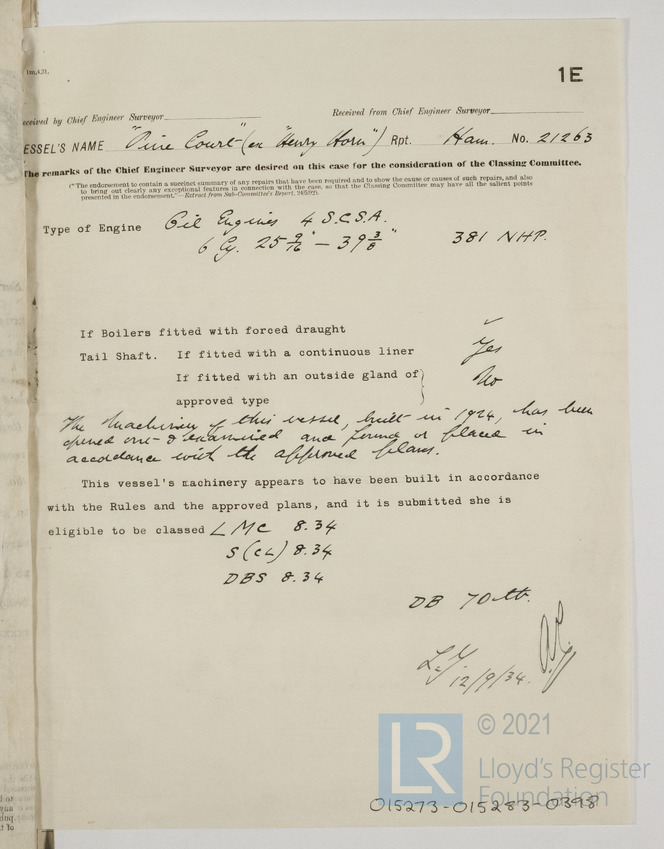 1m,4,31.
1E
eceived by Chief Engineer Surveyor
Received from Chief Engineer Surveyor
ESSEL'S NAME "Pine Court" (ex "Henry Horn") Rpt. Ham. No. 21263
The remarks of the Chief Engineer Surveyor are desired on this case for the consideration of the Classing Committee.
("The endorsement to contain a succinct summary of any repairs that have been required and to show the cause or causes of such repairs, and also
to bring out clearly any exceptional features in connection with the case, so that the Classing Committee may have all the salient points
presented in the endorsement."—Extract from Sub-Committee's Report,
Type of Engine Oil Engines 4 S.C.S.A.
6 Cy. 25 9/16" — 39 3/8" 381 NHP.
If Boilers fitted with forced draught ✓
Tail Shaft. If fitted with a continuous liner Yes
If fitted with an outside gland of } No
approved type
The machinery of this vessel, built in 1924, has been
opened out & examined and found or placed in
accordance with the approved plans.
This vessel's machinery appears to have been built in accordance
with the Rules and the approved plans, and it is submitted she is
eligible to be classed LMC 8.34
S(CL) 8.34
DBS 8.34
DB 70 lb.
12/9/34.
LR
© 2021
Lloyd's Register
Foundation
015273-015283-0398